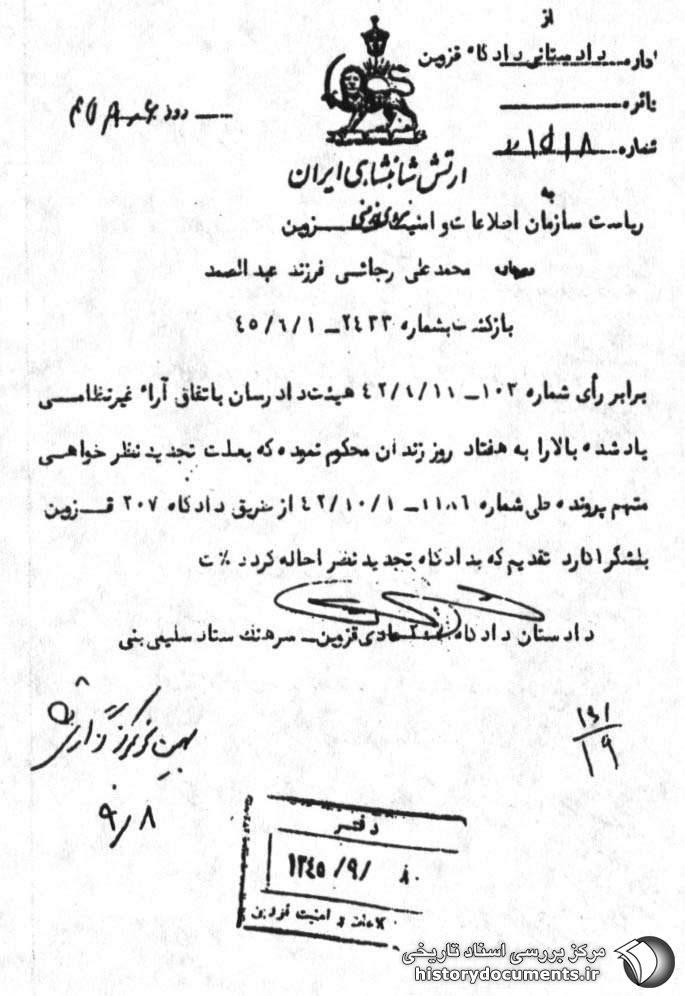 از
اداره دادستانی دادگاه قزوین
دائره
شماره
ارتش شاهنشاهی ایران
به
ریاست سازمان اطلاعات و امنیت قزوین
محمد علی رجائی فرزند عبدالصمد
بازگشت بشماره ۲٤۳۳ــ ٤٥/٦/۱
برابر رأی شماره ۱۰۲ــ ٤۲/٤/۱۱ هیئت دادرسان باتفاق آراء غیرنظامی
یاد شده بالا را به هفتاد روز زندان محکوم نموده که بعلت تجدید نظر خواهی
متهم پرونده طی شماره ٤۲/۱۰/۱ از طریق دادگاه ۲۰۷ قزوین
بلشگر ۱ گارد تقدیم که بدادگاه تجدید نظر احاله گردد
دادستان دادگاه عادی قزوین ــ سرهنگ ستاد سلیمی بنی
۱۵۱
۱۹
۹/۸
دفتر
۱۳٤٥/۹/۸
امنیت قزوین
مرکز بررسی اسناد تاریخی
historydocuments.ir